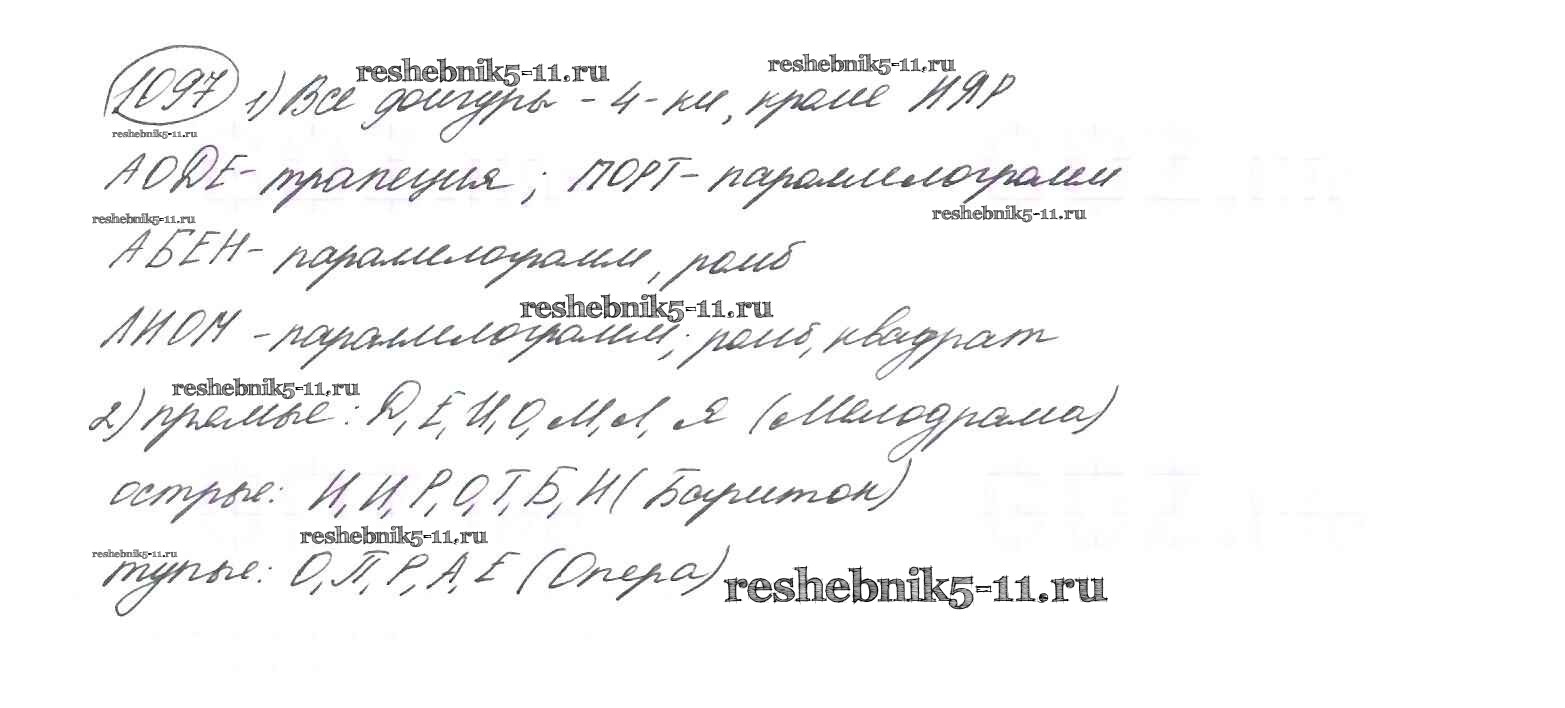 reshebnik5-11.ru reshebnik5-11.ru
1097 1) Все фигуры - 4-ки, кроме ИЯР
reshebnik5-11.ru
АОДЕ - трапеция; ПОРТ - параллелограмм
reshebnik5-11.ru reshebnik5-11.ru
АБЕН - параллелограмм, ромб
reshebnik5-11.ru
ЛИОМ - параллелограмм; ромб, квадрат
reshebnik5-11.ru
2) прямые: Д, Е, И, О, М, Л, Я (Мелодрама)
острые: И, И, Р, О, Т, Б, Н (Баритон)
reshebnik5-11.ru reshebnik5-11.ru
тупые: О, П, Р, А, Е (Опера)
reshebnik5-11.ru